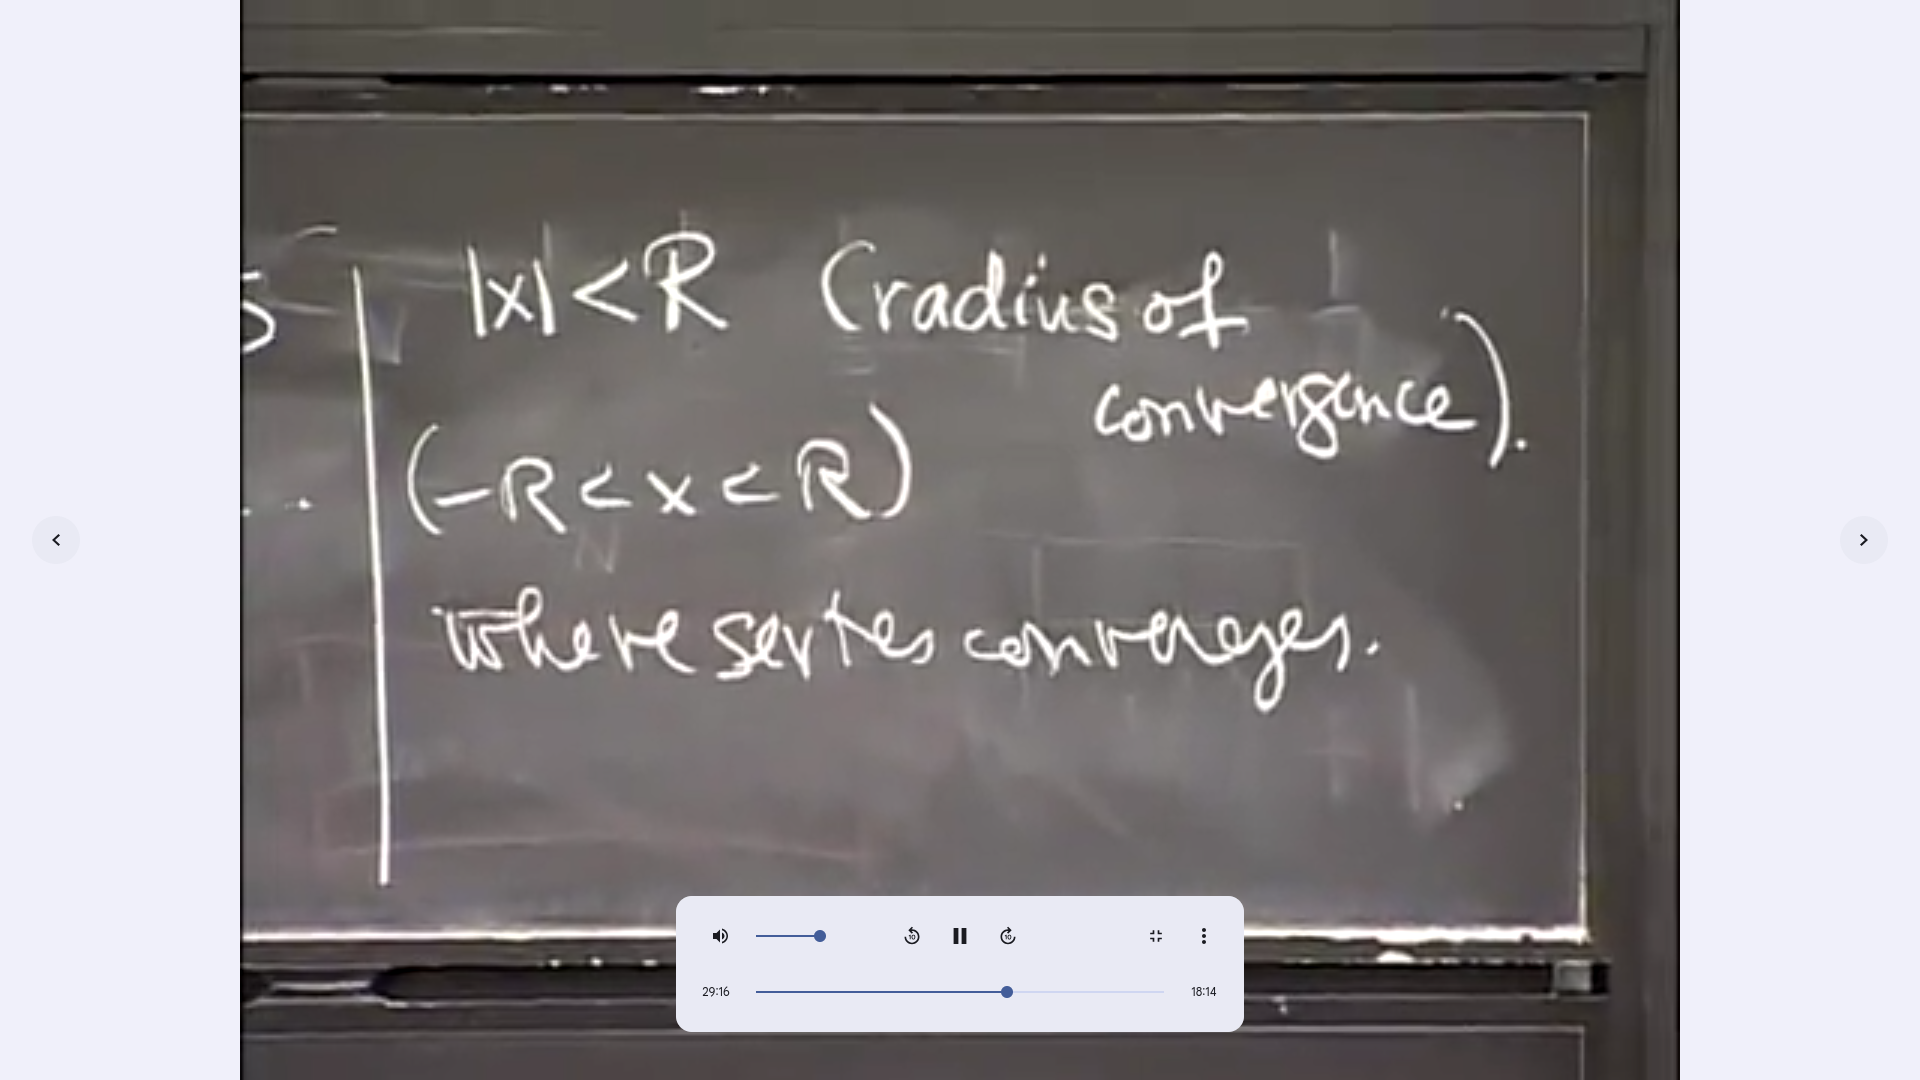 |x| < R (radius of
convergence).
(-R < x < R)
where series converges.
5
...
29:16
18:14
10
10